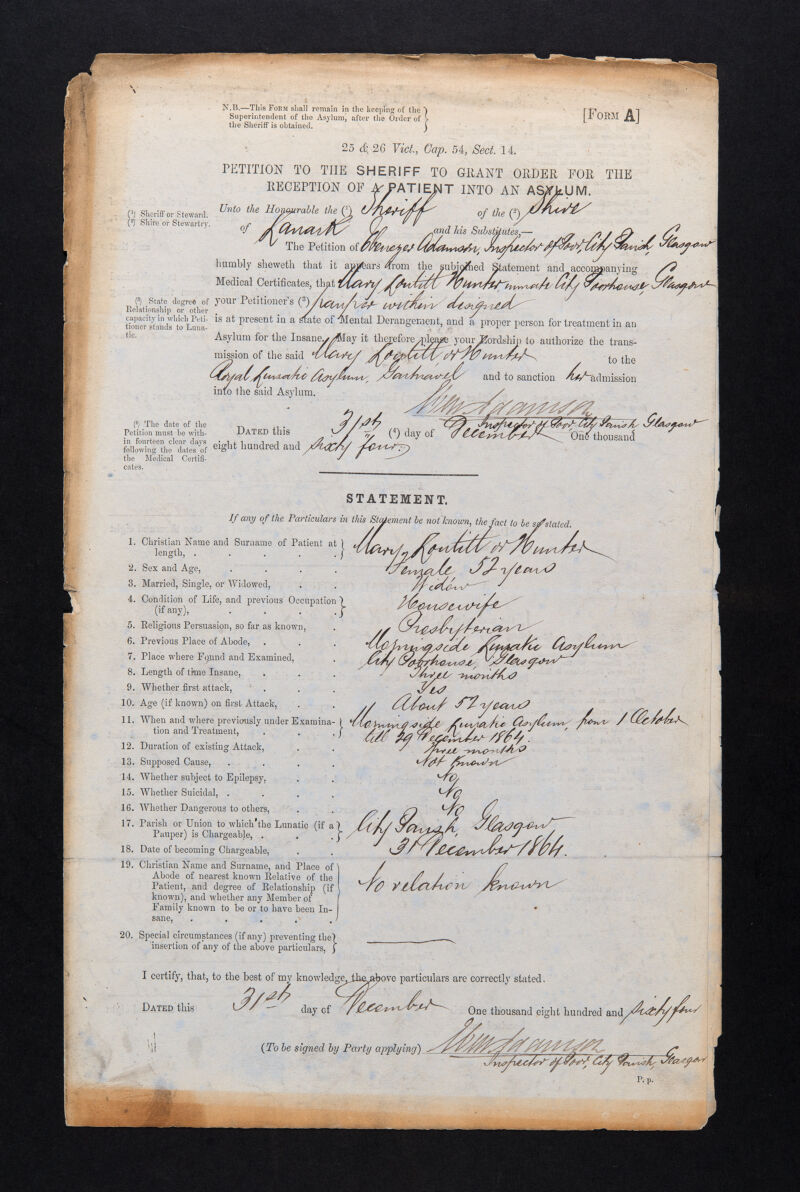 N.B.—This Form shall remain in the keeping of the
Superintendent of the Asylum, after the Order of
the Sheriff is obtained.
[Form A]
25 & 26 Vict., Cap. 54, Sect. 14.
PETITION TO THE SHERIFF TO GRANT ORDER FOR THE
RECEPTION OF A PATIENT INTO AN ASYLUM.
(¹) Sheriff or Steward.
(²) Shire or Stewartry.
Unto the Honourable the (¹) Sheriff of the (²) Shire
of Lanark and his Substitutes,—
The Petition of Ebenezer Adamson, Inspector of Poor, City Parish, Glasgow
humbly sheweth that it appears from the subjoined Statement and accompanying
Medical Certificates, that Mary Loutitt or Hunter inmate City Poorhouse, Glasgow
(³) State degree of
Relationship or other
capacity in which Peti-
tioner stands to Luna-
tic.
your Petitioner's (³) pauper within designed
is at present in a state of Mental Derangement, and a proper person for treatment in an
Asylum for the Insane. May it therefore please your Lordship to authorize the trans-
mission of the said Mary Loutitt or Hunter to the
Royal Lunatic Asylum, Gartnavel and to sanction her admission
into the said Asylum.
Eben Adamson
Inspector of Poor, City Parish, Glasgow
(⁴) The date of the
Petition must be with-
in fourteen clear days
following the dates of
the Medical Certifi-
cates.
Dated this 31st (⁴) day of December One thousand
eight hundred and sixty four.
STATEMENT.
If any of the Particulars in this Statement be not known, the fact to be so stated.
1. Christian Name and Surname of Patient at
length, . . . . . . Mary Loutitt or Hunter
2. Sex and Age, . . . . Female 52 years
3. Married, Single, or Widowed, . . Widow
4. Condition of Life, and previous Occupation
(if any), . . . . . Housewife
5. Religious Persuasion, so far as known, . Presbyterian
6. Previous Place of Abode, . . . Morningside Lunatic Asylum
7. Place where Found and Examined, . City Poorhouse, Glasgow
8. Length of time Insane, . . . Three months
9. Whether first attack, . . . Yes
10. Age (if known) on first Attack, . . About 52 years
11. When and where previously under Examina-
tion and Treatment, . . . Morningside Lunatic Asylum, from 1 October
till 29 December 1864.
12. Duration of existing Attack, . . Three months
13. Supposed Cause, . . . . Not known
14. Whether subject to Epilepsy, . . No
15. Whether Suicidal, . . . . No
16. Whether Dangerous to others, . . No
17. Parish or Union to which the Lunatic (if a
Pauper) is Chargeable, . . . City Parish, Glasgow
18. Date of becoming Chargeable, . . 31 December 1864.
19. Christian Name and Surname, and Place of
Abode of nearest known Relative of the
Patient, and degree of Relationship (if
known), and whether any Member of
Family known to be or to have been In-
sane, . . . . . No relation known
20. Special circumstances (if any) preventing the
insertion of any of the above particulars,
I certify, that, to the best of my knowledge, the above particulars are correctly stated.
Dated this 31st day of December One thousand eight hundred and sixty four
(To be signed by Party applying) Eben Adamson
Inspector of Poor, City Parish, Glasgow
P. p.